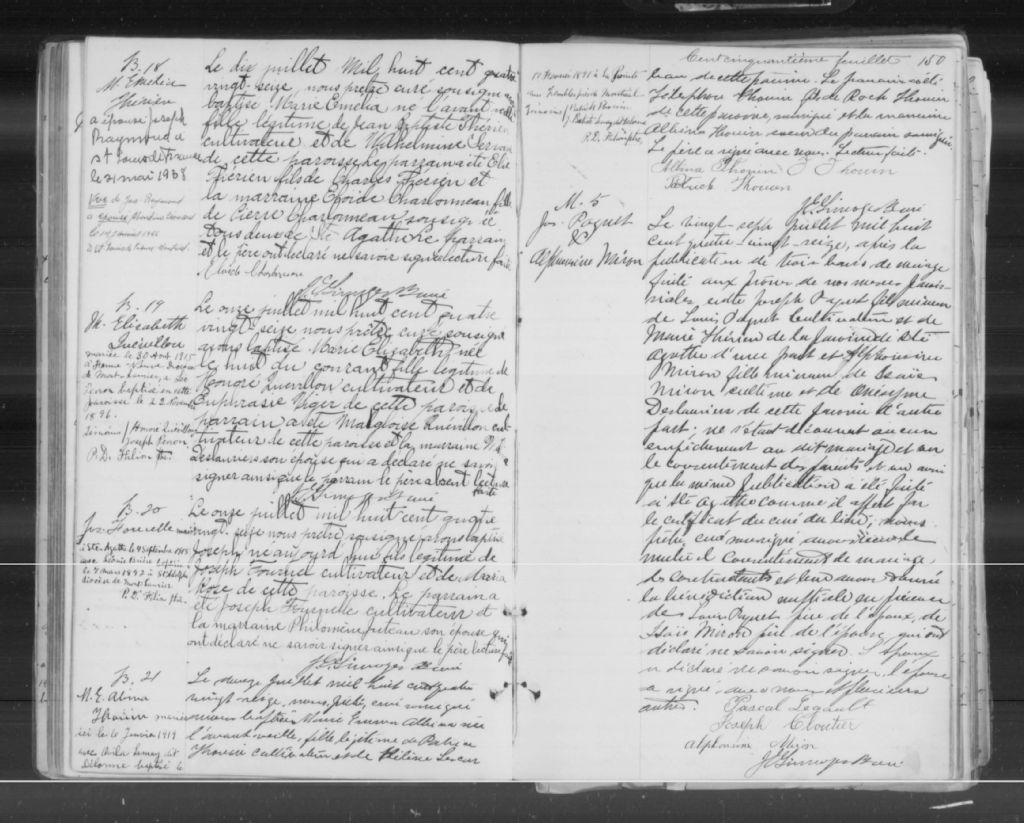 B. 18
M. Emelia
Therien
a épousé Joseph
Raymond à
le 21 mai 1938
Vve de Jos Raymond
Le dix juillet Mil huit cent quatre
vingt-seize, nous prêtre curé soussigné avons
baptisé Marie Emelia né l'avant veille
fille légitime de Jean Baptiste Thérien
cultivateur et de Wilhelmine
de cette paroisse. Le parrain a été Elie
Therien fils de Charles Therien et
la marraine Exoide Charbonneau fille
de Pierre Charbonneau, soussignée
tous deux de Ste Agathe. Le parrain
et le père ont déclaré ne savoir signer. Lecture faite
Exoide Charbonneau
JE Limoges Curé
B. 19
M. Elizabeth
Quevillon
mariée le 30 Août 1915
à Ferme Neuve, diocèse
de Mont-Laurier, à
baptisé en cette
paroisse le 22 Novembre
1896.
Témoins Honoré Quévillon
Joseph
Ptre.
Le onze juillet mil huit cent quatre
vingt seize nous prêtre curé soussigné
avons baptisé Marie Elizabeth née
le huit du courant fille légitime de
Honoré Quevillon cultivateur et de
Euphrasie Viger de cette paroisse. Le
parrain a été Magloire Quevillon cul-
tivateur de cette paroisse et la marraine
Deslauriers son épouse qui a déclaré ne savoir
signer ainsi que le parrain le père absent lecture
faite
JE Limoges Curé
B. 20
Jos. Fournelle marié
à Ste-Agathe le 4 Septembre 1918
avec
le 7 mars 1892 à St Adolphe
diocèse de Mont Laurier
Ptre.
Le onze juillet mil huit cent quatre
vingt-seize nous prêtre soussigné avons baptisé
Joseph, né aujourd'hui fils légitime de
Joseph Fournel cultivateur et de Maria
Rose de cette paroisse. Le parrain a
été Joseph Fournelle cultivateur et
la marraine Philomène Juteau son épouse qui
ont déclaré ne savoir signer ainsi que le père lecture faite
JE Limoges Curé
B. 21
M. E. Albina
Thouin mariée
ici le 6 Janvier 1919
avec Avila Lemay dit
Délorme baptisé le
Le douze Juillet mil huit cent quatre
vingt seize, nous, prêtre, curé soussigné
avons baptisé Marie Emma Albina née
l'avant veille, fille légitime de Patrice
Thouin cultivateur et de Hélène
Cent cinquantième feuillet 150
11 Février 1891 à la Pointe
aux Trembles près de Montréal
Témoins Patrick Thouin
Baptiste Lemay dit Delorme
Ptre
de cette paroisse. Le parrain a été
Télesphore Thouin fils de Rock Thouin
de cette paroisse, et la marraine
Albina Thouin soeur du parrain soussignée
Le père a signé avec nous. Lecture faite
Albina Thouin T Thouin
Patrick Thouin
JE Limoges Curé
M. 5
Jos. Paquet
&
Alphonsine Miron
Le vingt-sept Juillet mil huit
cent quatre-vingt-seize, après la
publication de trois bans de mariage
faite aux prônes de nos messes parois-
siales, entre Joseph Paquet fils mineur
de Louis Paquet cultivateur et de
Marie Thérien de la paroisse de Ste
Agathe d'une part et Alphonsine
Miron fille mineure de Isaïe
Miron cultivateur et de Onésime
Deslauriers de cette paroisse d'autre
part: ne s'étant découvert aucun
empêchement au dit mariage et vu
le consentement des parents et vu aussi
que la même publication a été faite
à Ste Agathe comme il appert par
le certificat du curé du lieu, nous
prêtre, curé soussigné avons reçu le
mutuel consentement de mariage
des contractants et leur avons donné
la bénédiction nuptiale en présence
de Louis Paquet père de l'époux, de
Isaïe Miron père de l'épouse, qui ont
déclaré ne savoir signer. L'époux
a déclaré ne savoir signer, l'épouse
a signé avec nous et plusieurs
autres. Pascal Legault
Joseph Cloutier
Alphonsine Miron
JE Limoges Curé